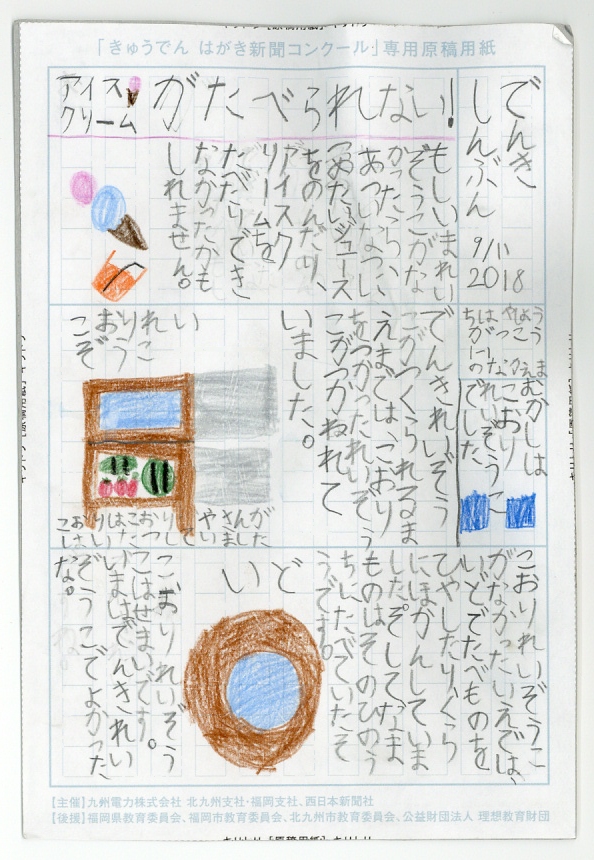 「きゅうでん はがき新聞コンクール」専用原稿用紙
でんき
しんぶん
9/11
2018
アイスクリームがたべられない!
もしいまれい
ぞうこがな
かったら、
あついなつに
つめたいジュース
をのんだり、
アイスク
リームを
たべたりでき
なかったかも
しれません。
むかしは
こおり
れいぞうこ
でした。
でんきれいぞう
こがつくられるま
えまでは、こおり
をつかったれいぞう
こがつかわれて
いました。
こおりれい
ぞうこ
こおりれいぞうこ
がなかったいえでは、
いどでたべものを
ひやしたり、くら
にほかんしていま
した。そしてなま
ものはそのひのう
ちにたべていたそ
うです。
いど
こおりれいぞう
こはせまいです。
いまはでんきれい
ぞうこでよかった
な。
【主催】九州電力株式会社 北九州支社・福岡支社、西日本新聞社
【後援】福岡県教育委員会、福岡市教育委員会、北九州市教育委員会、公益財団法人 理想教育財団